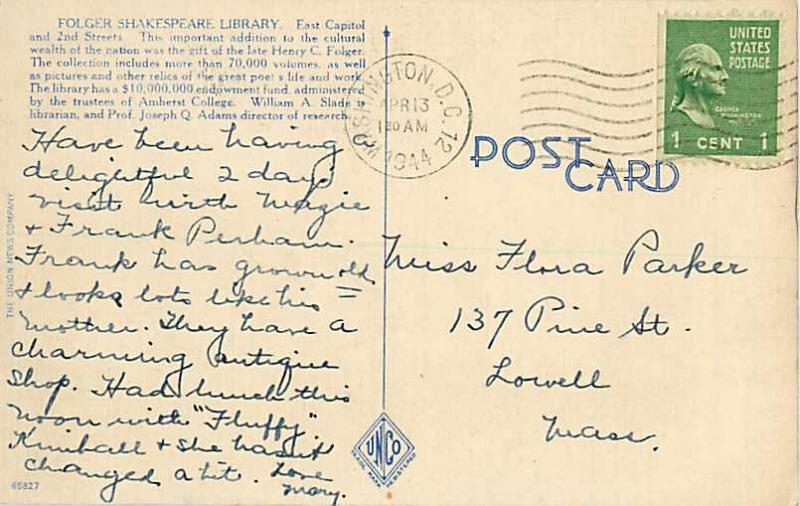 FOLGER SHAKESPEARE LIBRARY. East Capitol
and 2nd Streets. This important addition to the cultural
wealth of the nation was the gift of the late Henry C. Folger.
The collection includes more than 70,000 volumes, as well
as pictures and other relics of the great poet's life and work.
The library has a $10,000,000 endowment fund, administered
by the trustees of Amherst College. William A. Slade is
librarian, and Prof. Joseph Q. Adams director of research.
Have been having
delightful 2 days
visit with Mazie
& Frank Perham.
Frank has grown old
& looks lots like his =
mother. They have a
charming antique
shop. Had lunch this
noon with "Fluffy"
Kimball & she hasn't
changed a bit. Love
Mary.
65827
THE UNION NEWS COMPANY
WASHINGTON, D.C. 12
APR 13
1 30 AM
1944
POST CARD
UNITED
STATES
POSTAGE
GEORGE
WASHINGTON
1 CENT 1
Miss Flora Parker
137 Pine St.
Lowell
Mass.
UNCO
TRADE MARK REGISTERED